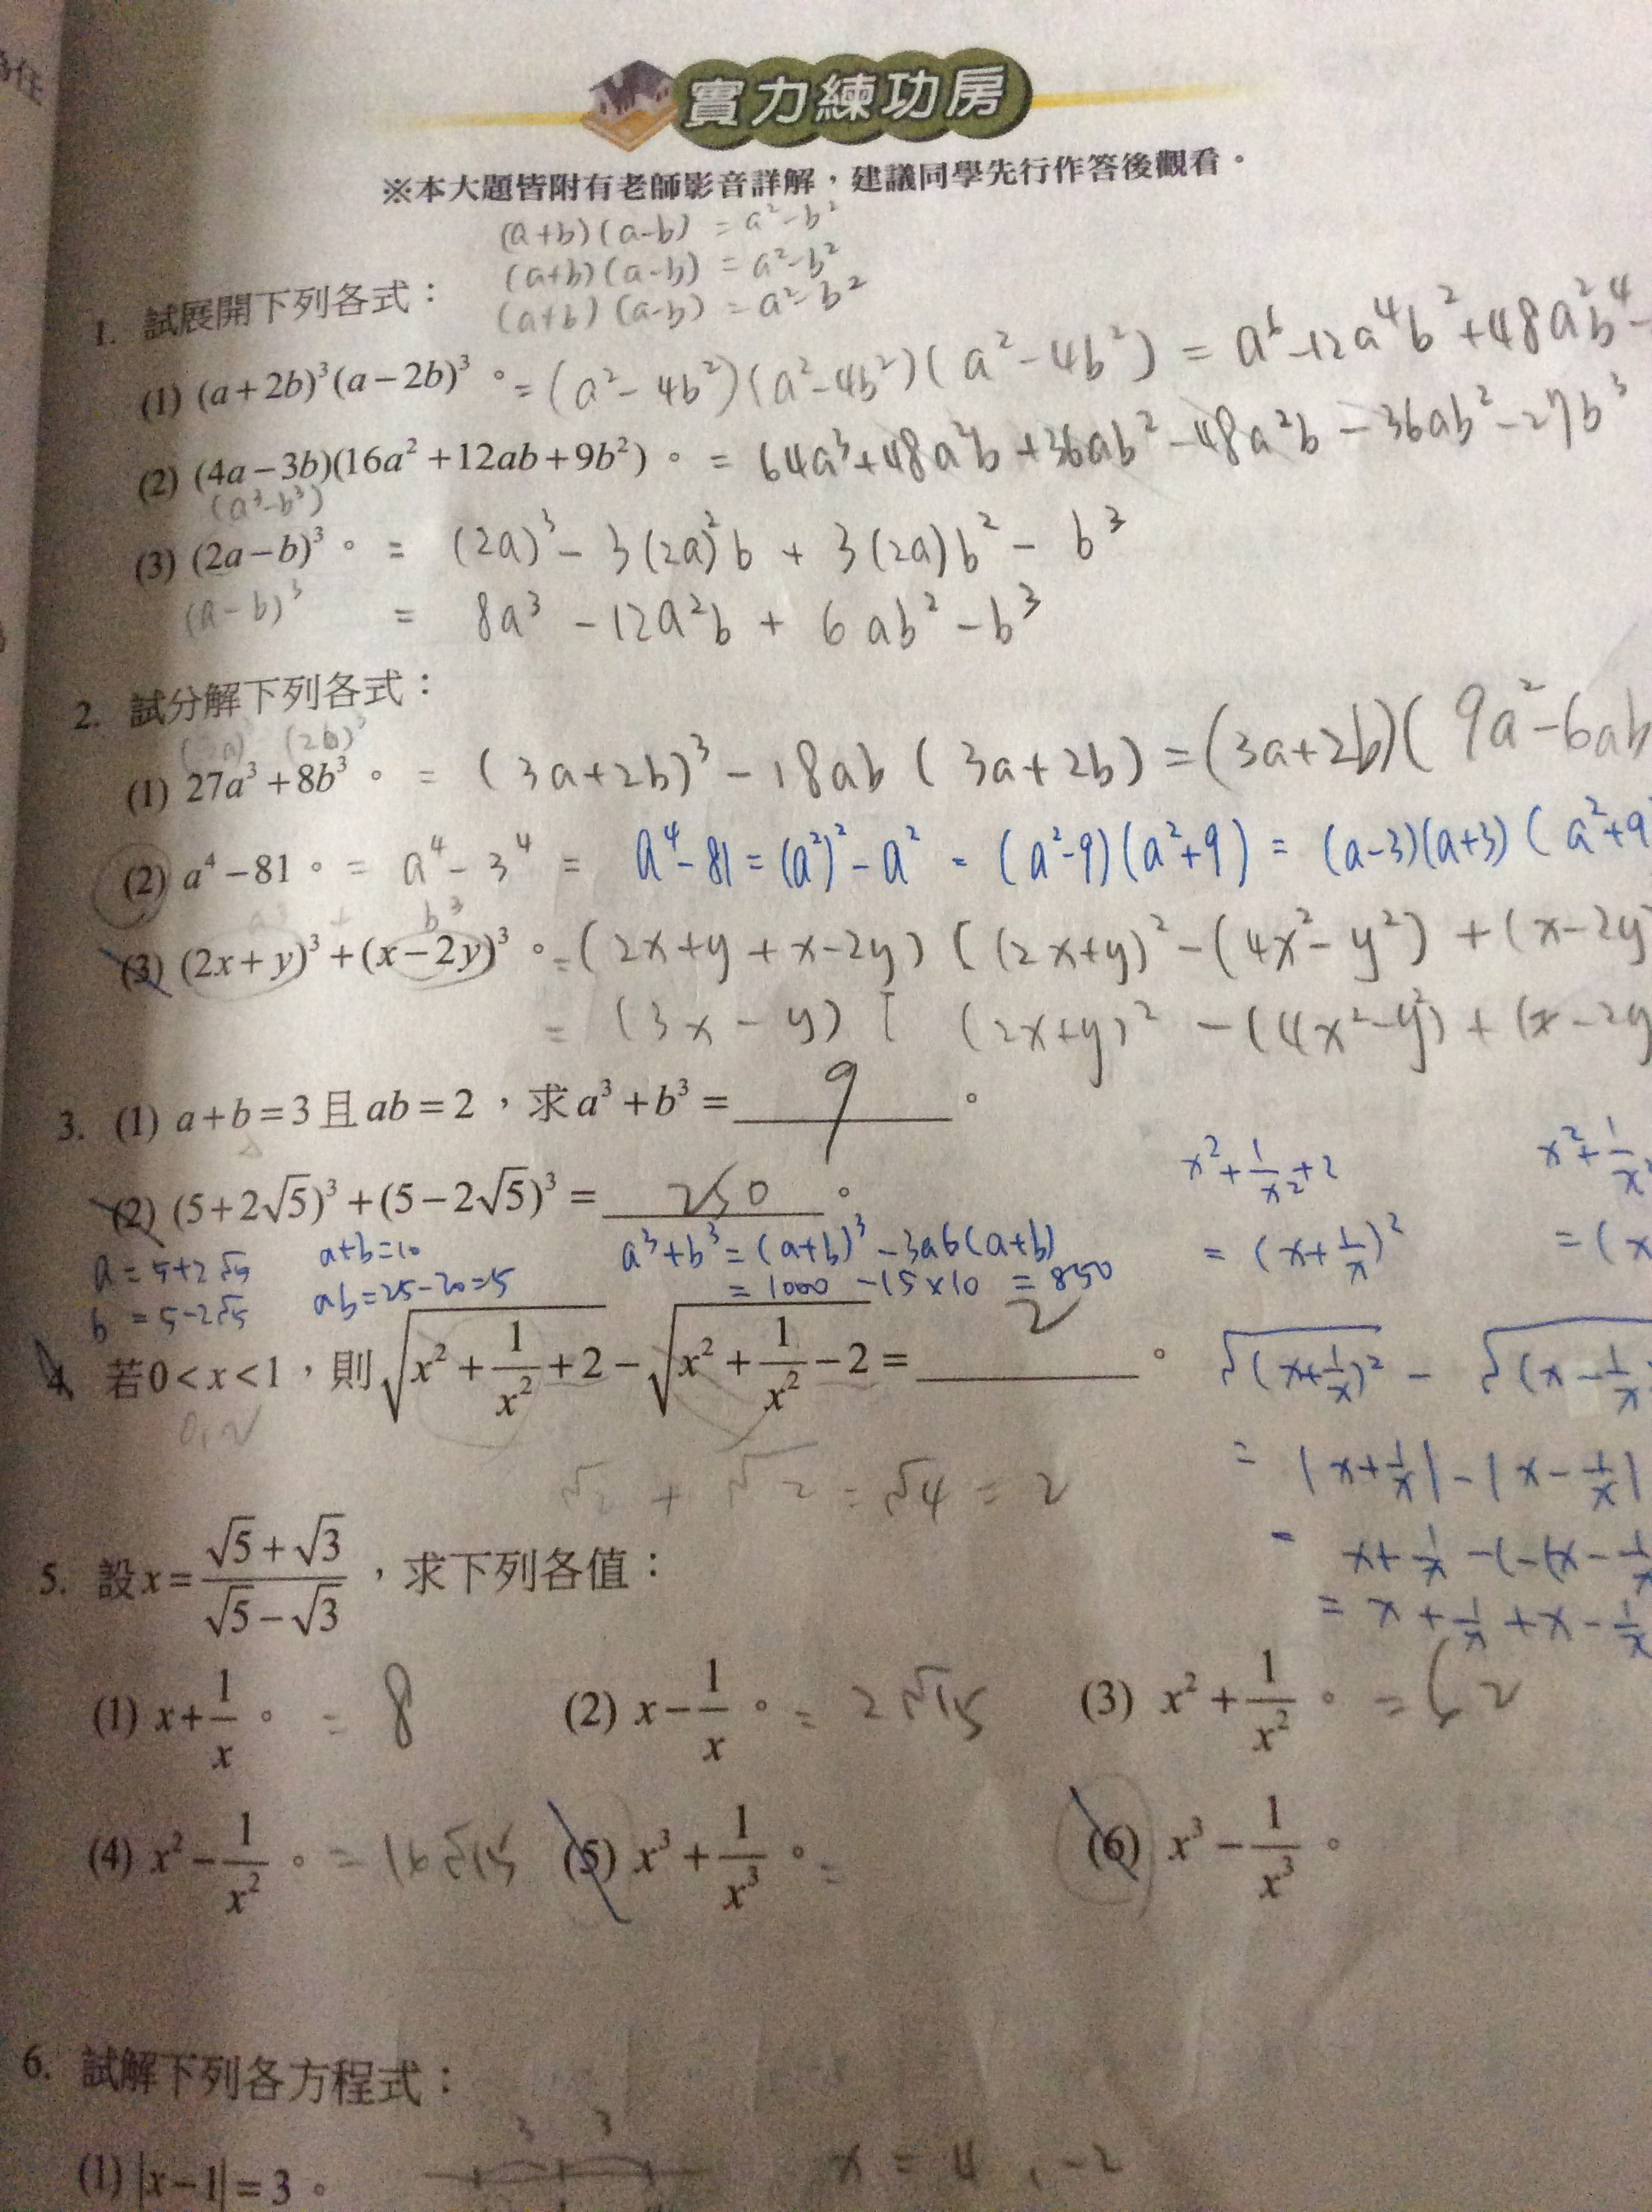 實力練功房
※本大題皆附有老師影音詳解，建議同學先行作答後觀看。
(a+b)(a-b) = a²-b²
(a+b)(a-b) = a²-b²
(a+b)(a-b) = a²-b²
1. 試展開下列各式：
(1) (a+2b)³(a−2b)³。= (a²-4b²)(a²-4b²)(a²-4b²) = a⁶-12a⁴b²+48a²b⁴-
(2) (4a−3b)(16a²+12ab+9b²)。= 64a³+48a²b+36ab²-48a²b-36ab²-27b³
(a³-b³)
(3) (2a−b)³。= (2a)³-3(2a)²b+3(2a)b²-b³
(a-b)³ = 8a³-12a²b+6ab²-b³
2. 試分解下列各式：
(2b)³
(1) 27a³+8b³。= (3a+2b)³-18ab(3a+2b) = (3a+2b)(9a²-6ab
(2) a⁴−81。= a⁴-3⁴ = a⁴-81=(a²)²-a² = (a²-9)(a²+9) = (a-3)(a+3)(a²+9
b³
(3) (2x+y)³+(x−2y)³。=(2x+y+x-2y)[(2x+y)²-(4x²-y²)+(x-2y
= (3x-y)[(2x+y)²-(4x²-y²)+(x-2y
3. (1) a+b=3且ab=2，求a³+b³= 9 。
x²+1/x²+2 x²+1/x²
(2) (5+2√5)³+(5−2√5)³= 250 。
= (x+1/x)² = (x
a=5+2√5 a+b=10 a³+b³=(a+b)³-3ab(a+b)
b=5-2√5 ab=25-20=5 = 1000-15×10 = 850
4. 若0<x<1，則√(x²+1/x²+2)−√(x²+1/x²−2)= 2 。 √(x+1/x)² - √(x-1/x
= |x+1/x|-|x-1/x|
√2 + √2 = √4 = 2
= x+1/x-(-(x-1/x
= x+1/x+x-1/x
5. 設x=(√5+√3)/(√5−√3)，求下列各值：
(1) x+1/x。= 8 (2) x−1/x。= 2√15 (3) x²+1/x²。= 62
(4) x²−1/x²。= 16√15 (5) x³+1/x³。= (6) x³−1/x³。
6. 試解下列各方程式：
3 3
(1) |x−1|=3。 x = 4, -2